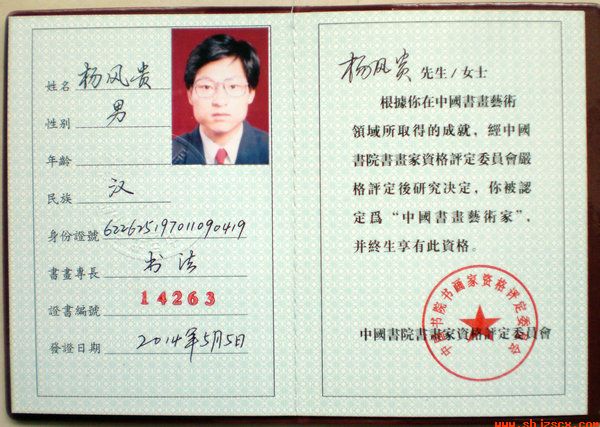 姓名 杨风贵
性别 男
年齡
民族 汉
身份證號 622625197011090419
書畫專長 书法
證書編號 14263
發證日期 2014年5月5日
杨风贵 先生/女士
根據你在中國書畫藝術
領域所取得的成就，經中國
書院書畫家資格評定委員會嚴
格評定後研究决定，你被認
定爲“中國書畫藝術家”，
并終生享有此資格。
中國書院書畫家資格評定委員會
中国书院书画家资格评定委员会